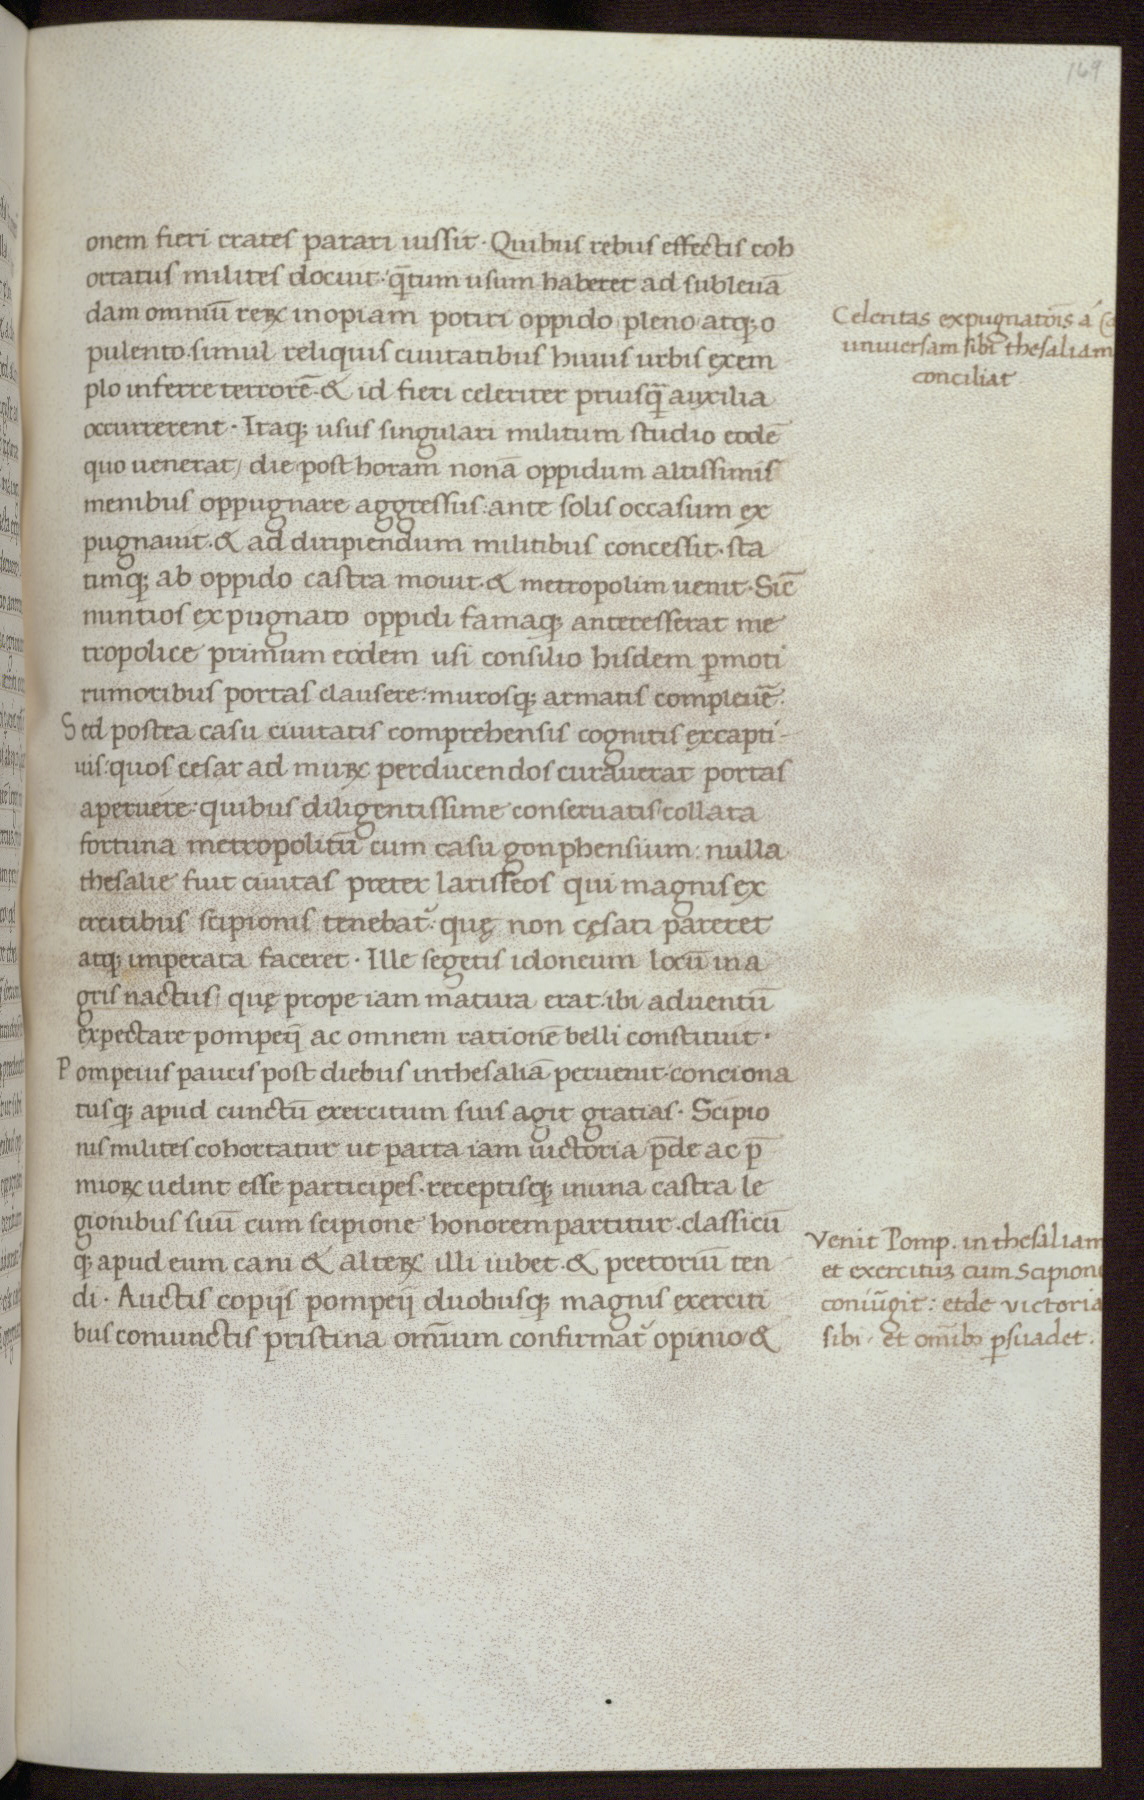 169
onem fieri crates parari iussit · Quibus rebus effectis coh
ortatus milites docuit · q̄tum usum haberet ad subleuā
dam omniū reꝝ inopiam potiri oppido pleno atq; o
pulento simul reliquis ciuitatibus huius urbis exem
plo inferre terrorē · & id fieri celeriter priusq̄ auxilia
occurrerent · Itaq; usus singulari militum studio eodē
quo uenerat / die post horam nonā oppidum altissimis
menibus oppugnare aggressus : ante solis occasum ex
pugnauit · & ad diripiendum militibus concessit · sta
timq; ab oppido castra mouit · & metropolim uenit · Sic̄
nuntios expugnato oppidi famaq; anteresserat me
tropolice primum eodem usi consilio hisdem p̱moti
rumoribus portas clausere : murosq; armatis compleuē̄ .
Sed postea casu ciuitatis comprehensis cognitis ex capti-
uis : quos cesar ad muꝝ perducendos curauerat portas
aperuere : quibus diligentissime conseruatis collata
fortuna metropolitū cum casu gonphensium : nulla
thesalie fuit ciuitas preter larisseos qui magnis ex
ercitibus scipionis tenebat᷑ · quę non cęsari pareret
atq; imperata faceret · Ille segetis idoneum locū in a
gris nactus / quę prope iam matura erat · ibi aduentū
expectare pompeij ac omnem rationē belli constituit ·
Pompeius paucis post diebus in thesaliā peruenit · conciona
tusq; apud cunctū exercitum suis agit gratias · Scipio
nis milites cohortatur ut parta iam uictoria p̄de ac p̄
mioꝝ uelint esse participes · receptisq; in una castra le
gionibus suū cum scipione honorem partitur · classicū
q; apud eum cani & alteꝝ illi iubet · & pretoriū ten
di · Auctis copijs pompeij duobusq; magnis exerciti
bus coniunctis pristina om̄ium confirmat᷑ opinio &
Celeritas expugnatōis á
uniuersam sibi thesaliam
conciliat
Venit Pomp. in thesaliam
et exercituꝫ cum Scipion
coniūgit : et de victoria
sibi · Et om̄ibꝰ p̱suadet .